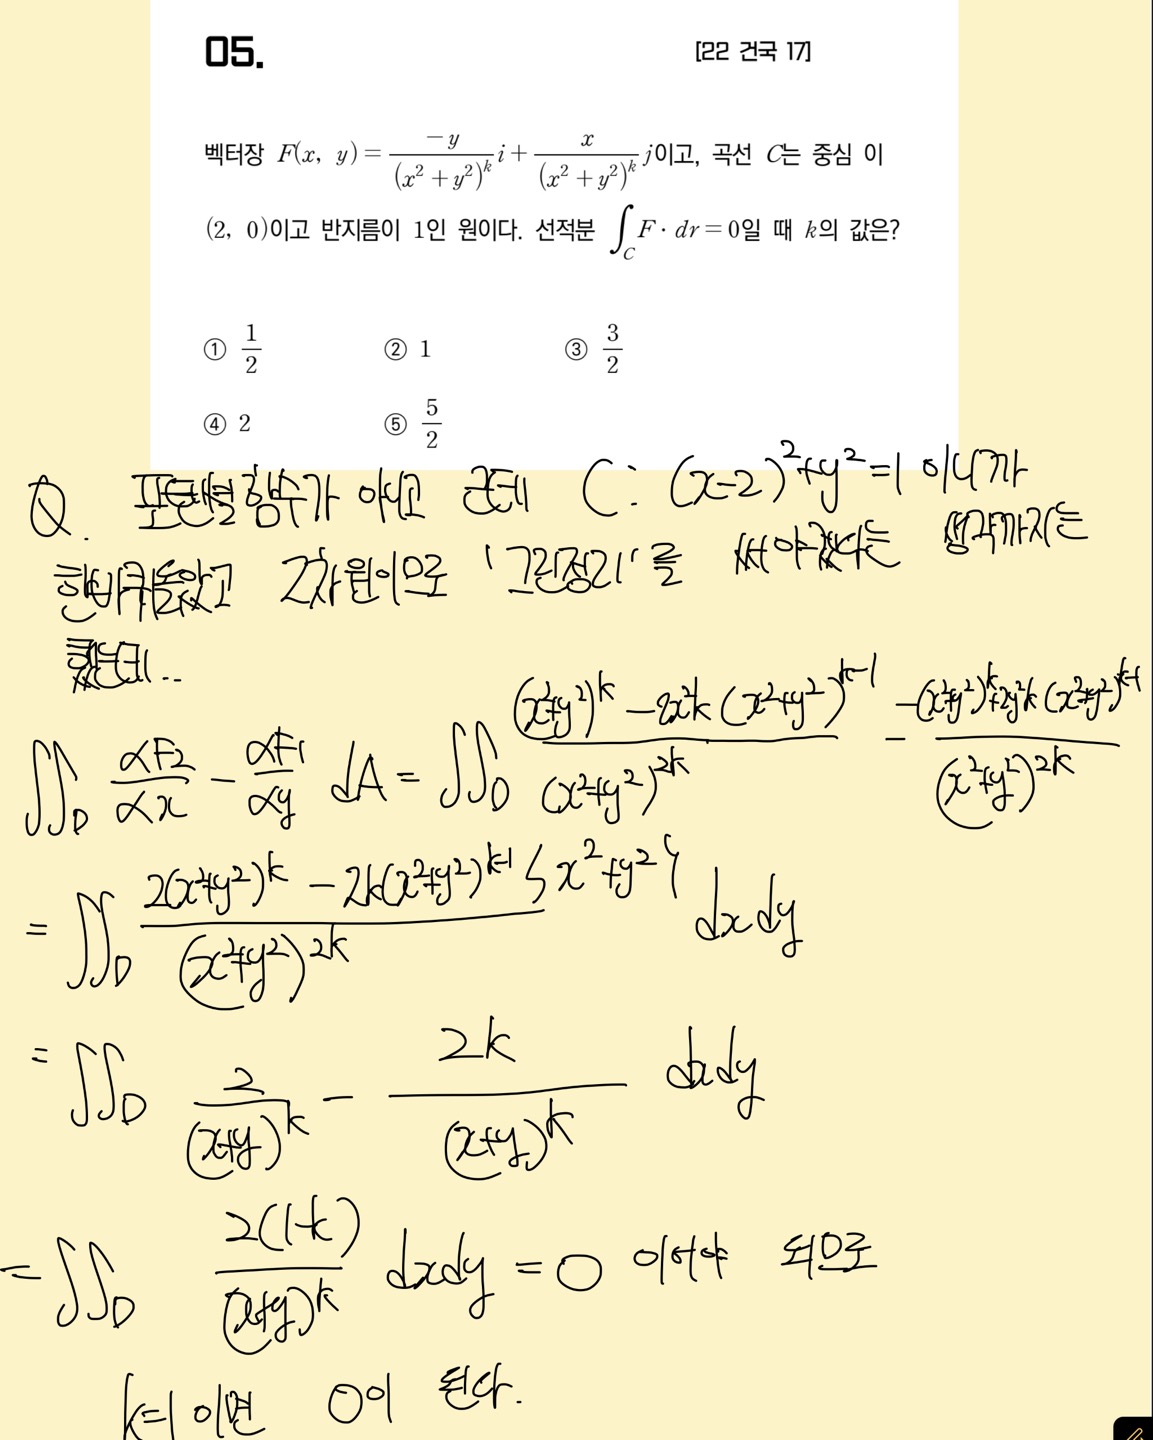 05. [22 건국 17]
벡터장 F(x, y) = \frac{-y}{(x^2+y^2)^k} i + \frac{x}{(x^2+y^2)^k} j이고, 곡선 C는 중심 이
(2, 0)이고 반지름이 1인 원이다. 선적분 \int_C F · dr = 0일 때 k의 값은?
① \frac{1}{2} ② 1 ③ \frac{3}{2}
④ 2 ⑤ \frac{5}{2}
Q. 포텐셜함수가 아니고 근데 C: (x-2)^2+y^2=1 이니까
한바퀴돌았고 2차원이므로 '그린정리'를 써야겠다는 생각까지는
했는데..
\iint_D \frac{αF_2}{αx} - \frac{αF_1}{αy} dA = \iint_D \frac{(x^2+y^2)^k - 2x^2k(x^2+y^2)^{k-1}}{(x^2+y^2)^{2k}} - \frac{-(x^2+y^2)^k+2y^2k(x^2+y^2)^{k-1}}{(x^2+y^2)^{2k}}
= \iint_D \frac{2(x^2+y^2)^k - 2k(x^2+y^2)^{k-1}{x^2+y^2}}{(x^2+y^2)^{2k}} dxdy
= \iint_D \frac{2}{(x+y)^k} - \frac{2k}{(x+y)^k} dxdy
= \iint_D \frac{2(1-k)}{(x+y)^k} dxdy = 0 이어야 되므로
k=1 이면 0이 된다.